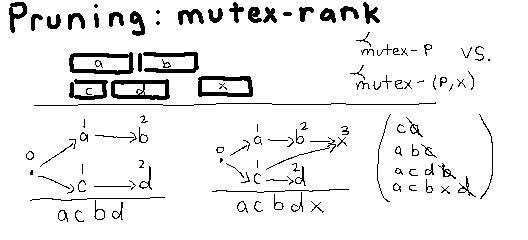 Pruning: mutex-rank
a b
c d x
≺mutex-P vs.
≺mutex-(P,x)
1 2
a b
0
1 2
c d
a c b d
1 2 3
a b x
0
1 2
c d
a c b d x
c a
a b c
a c d b
a c b x d